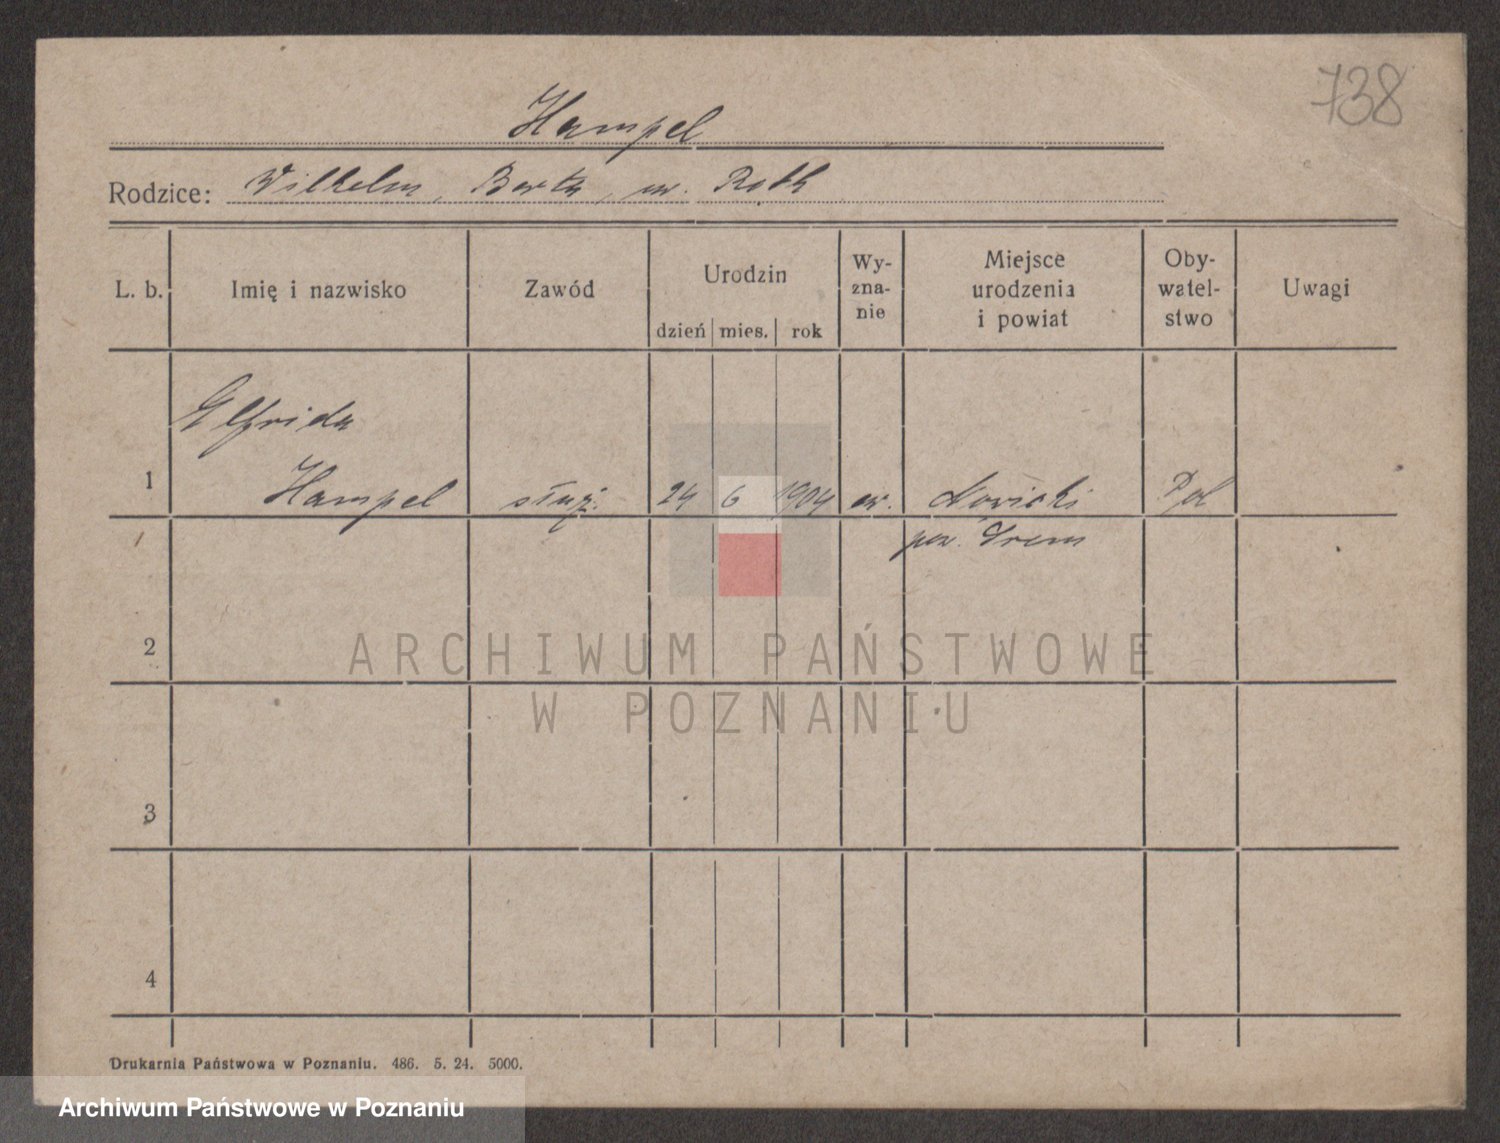 738
Hampel
Rodzice: Wilhelm, Berta, ur. Roth
L. b. Imię i nazwisko Zawód Urodzin dzień mies. rok Wyznanie Miejsce urodzenia i powiat Obywatelstwo Uwagi
Elfrida
1 Hampel służ. 24 6 1904 ew. Nowicki Pol
pow. Śrem
2
ARCHIWUM PAŃSTWOWE
W POZNANIU
3
4
Drukarnia Państwowa w Poznaniu. 486. 5. 24. 5000.
Archiwum Państwowe w Poznaniu